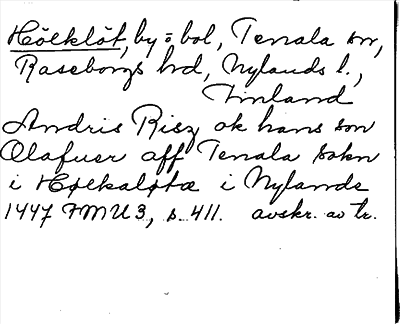 Hölklöt, by = bol, Tenala sn,
Raseborgs hd, Nylands l.,
Finland
Andris Risz ok hans son
Olafuer aff Tenala sokn
i Hølkaløtæ i Nylande
1447 FMU 3, s. 411. avskr. av tr.